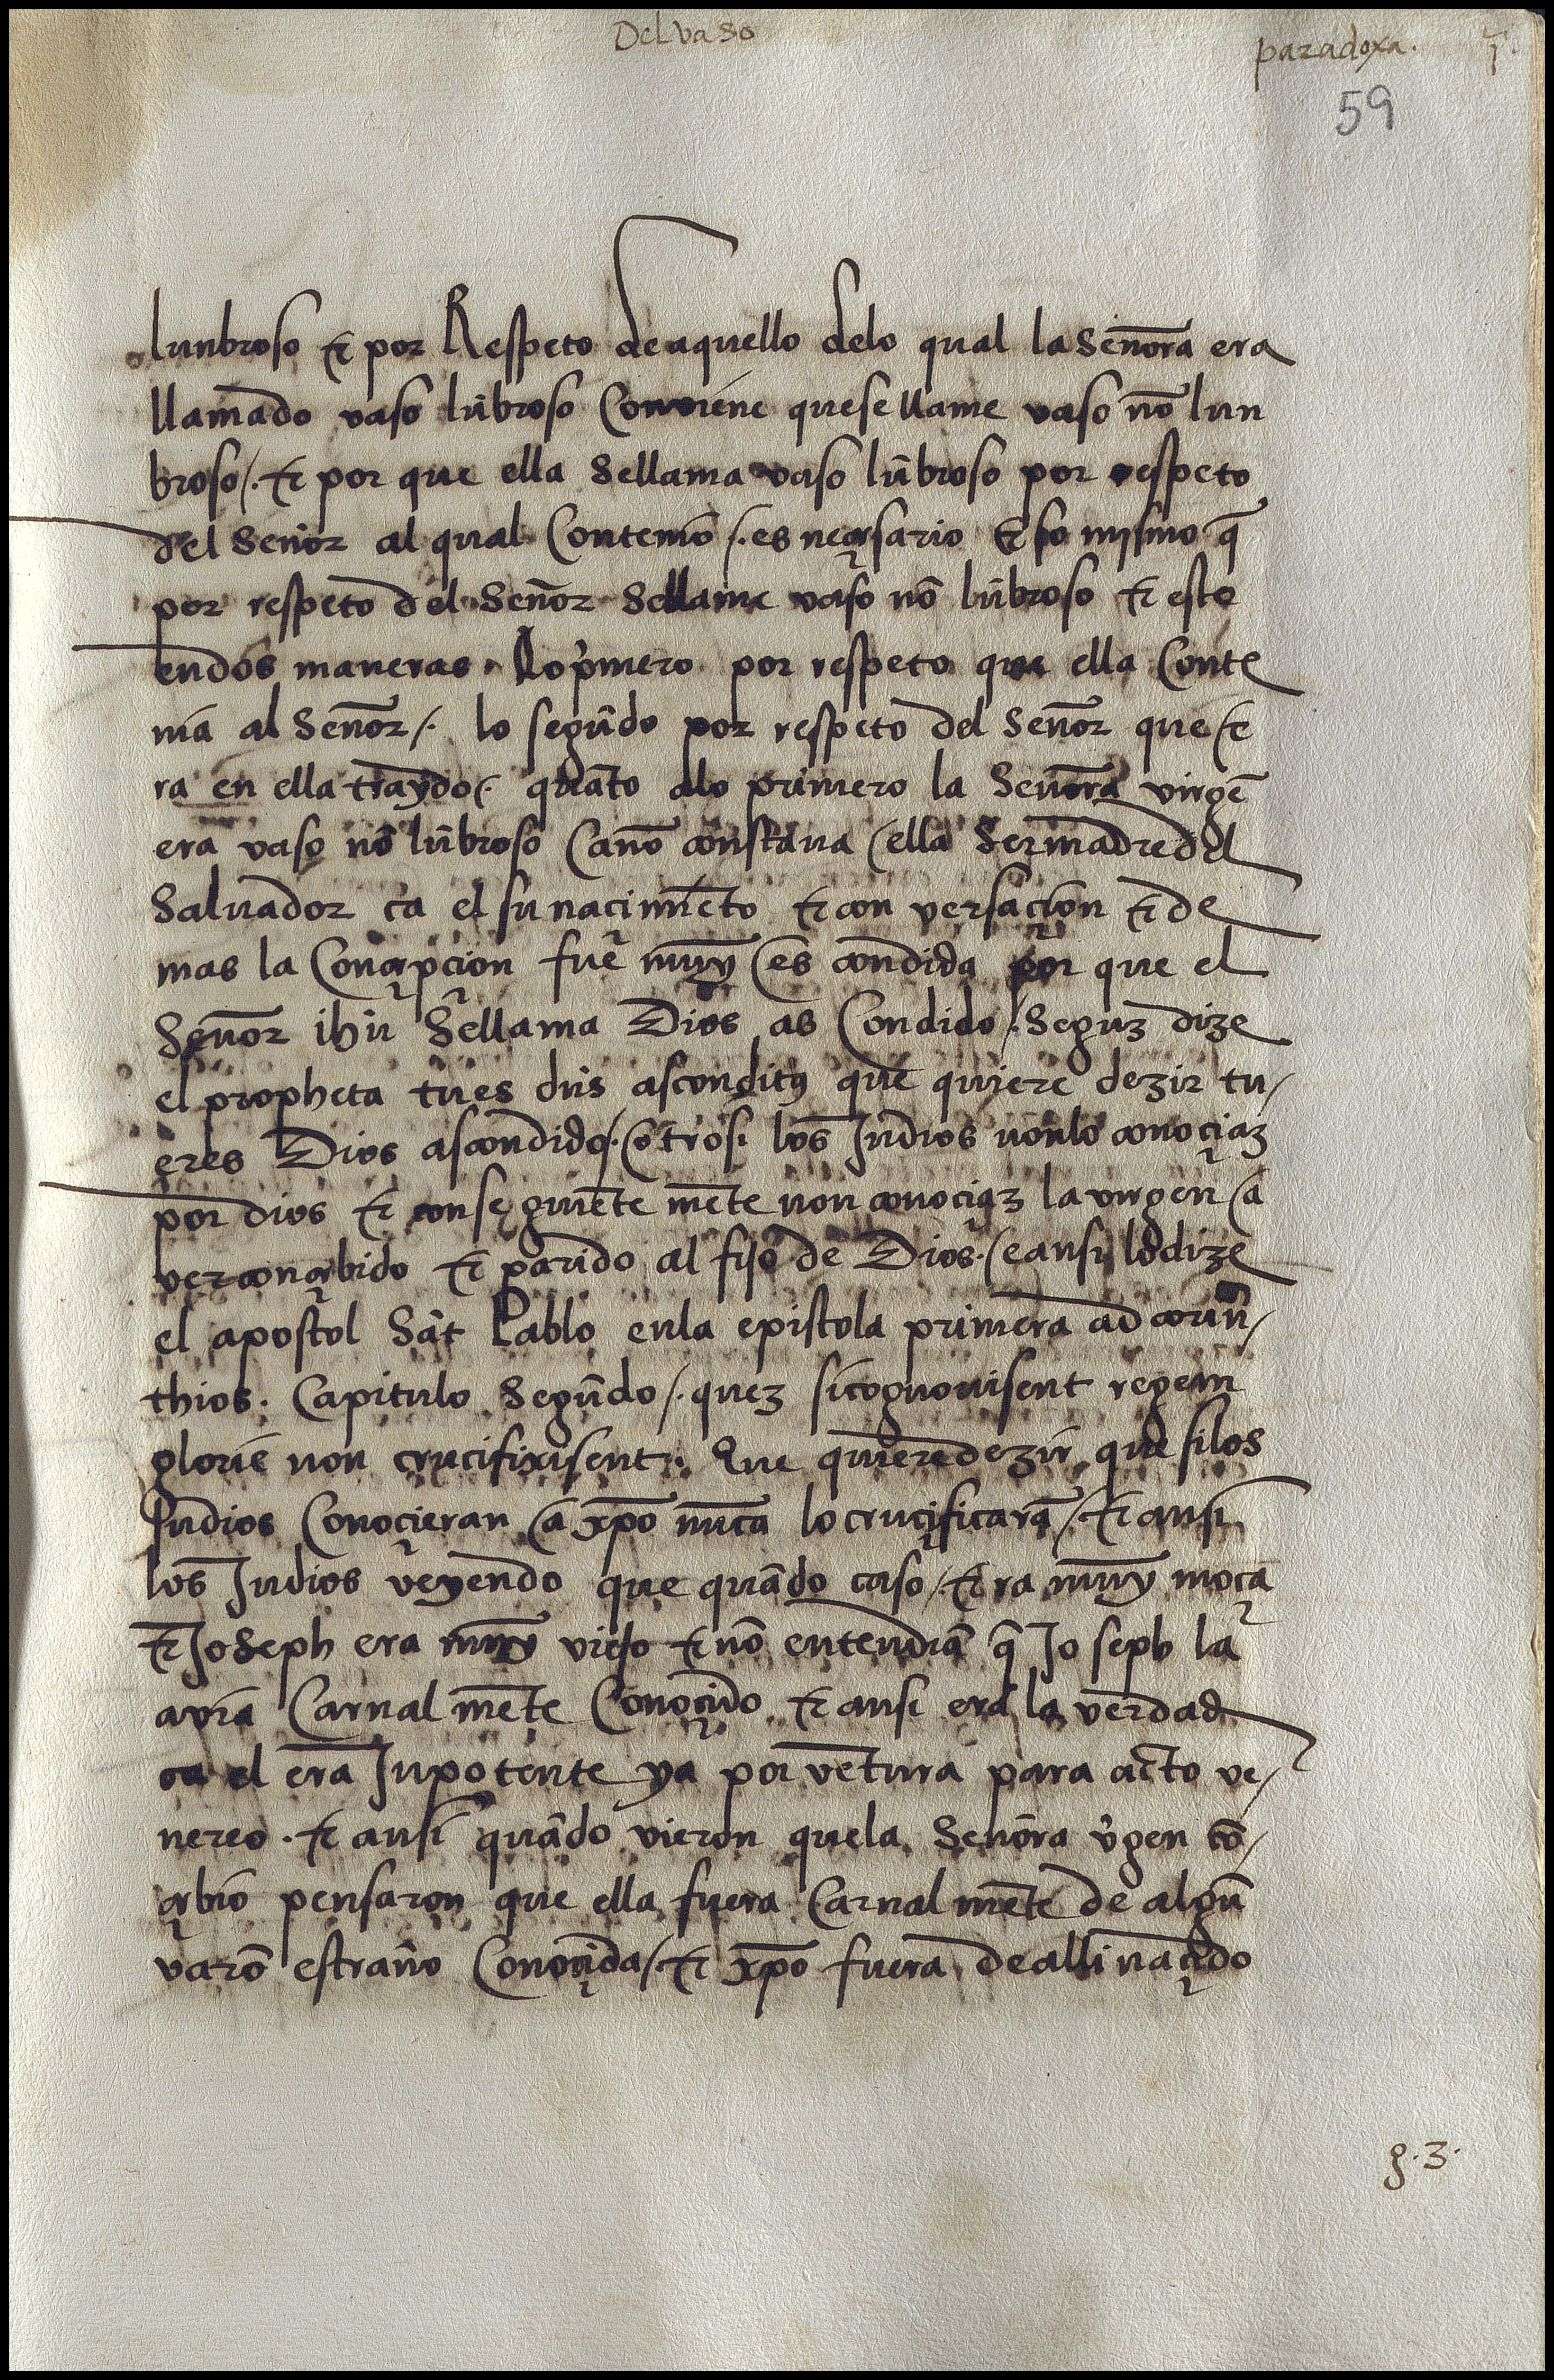 Del vaso
paradoxa. j
59
lunbroso & por Respeto de aquello delo qual la Señora era
llamado vaso lũbroso Conviene que se llame vaso nõ lun
broso /. & por que ella Se llama vaso lũbroso por respeto
del Señor al qual Contenio /. es neçessario eso mismo q̃
por respeto del Señor Se llame vaso nõ lũbroso & esto
en dos maneras. Lo p̃mero por respeto que ella Conte
nia al Señor /. lo segũdo por respeto del Señor que e
ra en ella traydo /. quãto alo primero la Señora virgẽ
era vaso nõ lũbroso Ca nõ constava ella Ser madre del
Salvador ca el su nacimiẽto & con versaçion & de
mas la Conçepcion fue muy es condida por que el
Señor ihũ Se llama Dios as Condido /. Segũ dize
el propheta tu es dñs asconditus que quiere dezir tu
eres Dios ascondido /. otrosi los Judios non lo conoçian
por dios & conse guiẽte mẽte non conoçian la virgen a
ver conçebido & parido al fijo de Dios. e ansi lo dize
el apostol Sãt Pablo en la epistola primera ad corin
thios. Capitulo Segũdo /. quez si cognouisent regem
glorie non crucifixisent. Que quiere dezir que si los
Judios Conoçieran a xp̃o nũca lo cruçificarã /. & ansi
los Judios veyendo que quãdo caso / era muy moça
& Joseph era muy viejo & nõ entendiã q̃ Jo seph la
avia Carnal mẽte Conoçido & ansi era la verdad
ca el era Inpotente ya por vẽtura para acto ve
nereo. & ansi quãdo vieron que la Señora ṽgen cõ
çebio pensaron que ella fuera Carnal mẽte de algũ
varõ estraño Conoçida / & xp̃o fuera de alli naçido
g. 3.